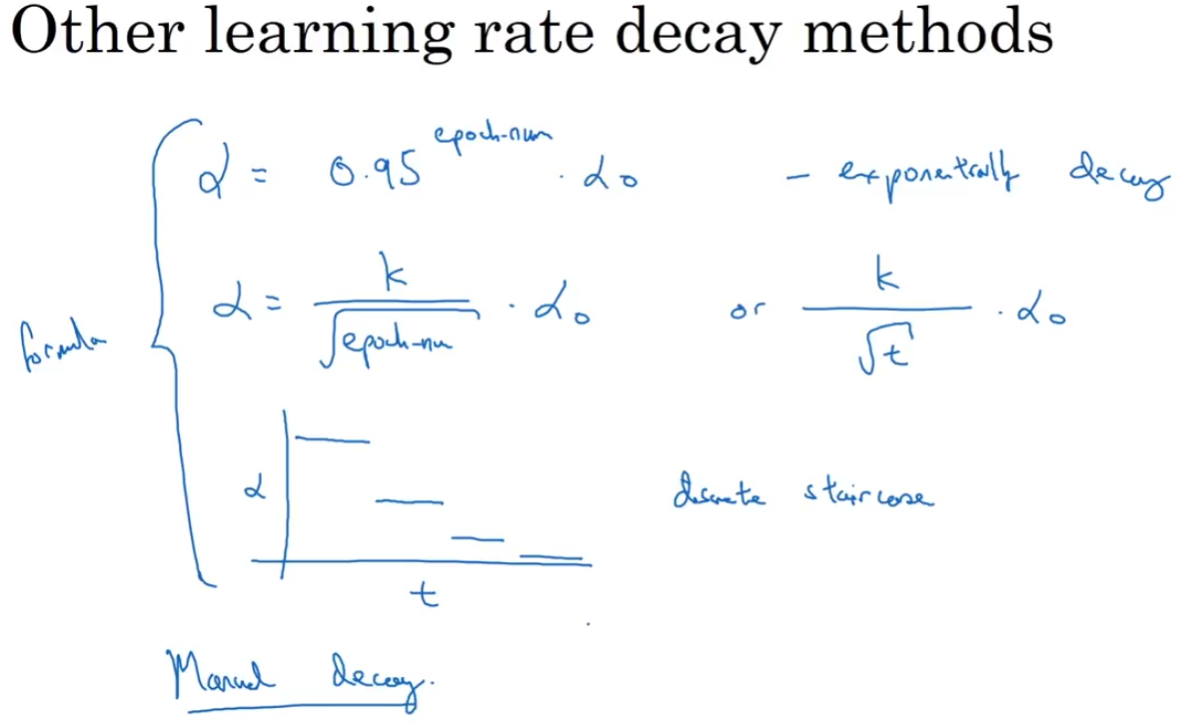 Other learning rate decay methods
α = 0.95^epoch-num · α₀ - exponentially decay
formula
α = k / √epoch-nu · α₀ or k / √t · α₀
α
discrete staircase
t
Manual decay.